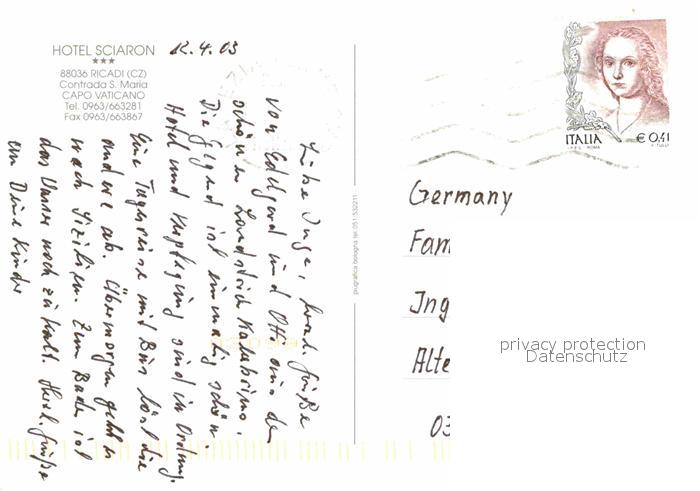 HOTEL SCIARON
★★★
88036 RICADI (CZ)
Contrada S. Maria
CAPO VATICANO
Tel. 0963/663281
Fax 0963/663867
12.4.03
Liebe Inge, herzl. Grüße
von Edelgard und Otto aus dem
schönen Landstrich Kalabrino.
Die Gegend ist einmalig schön
Hotel und Verpflegung sind in Ordnung.
Eine Tagesreise mit Bus löst die
andere ab. Übermorgen geht es
nach Sizilien. Zum Baden ist
das Wasser noch zu kalt. Herzl. Grüße
an Deine Kinder
grugrafica bologna tel. 051/532211
ITALIA € 0,41
I.P.Z.S. ROMA T. TULLI
Germany
Fam
Ing
Alte
03
privacy protection
Datenschutz